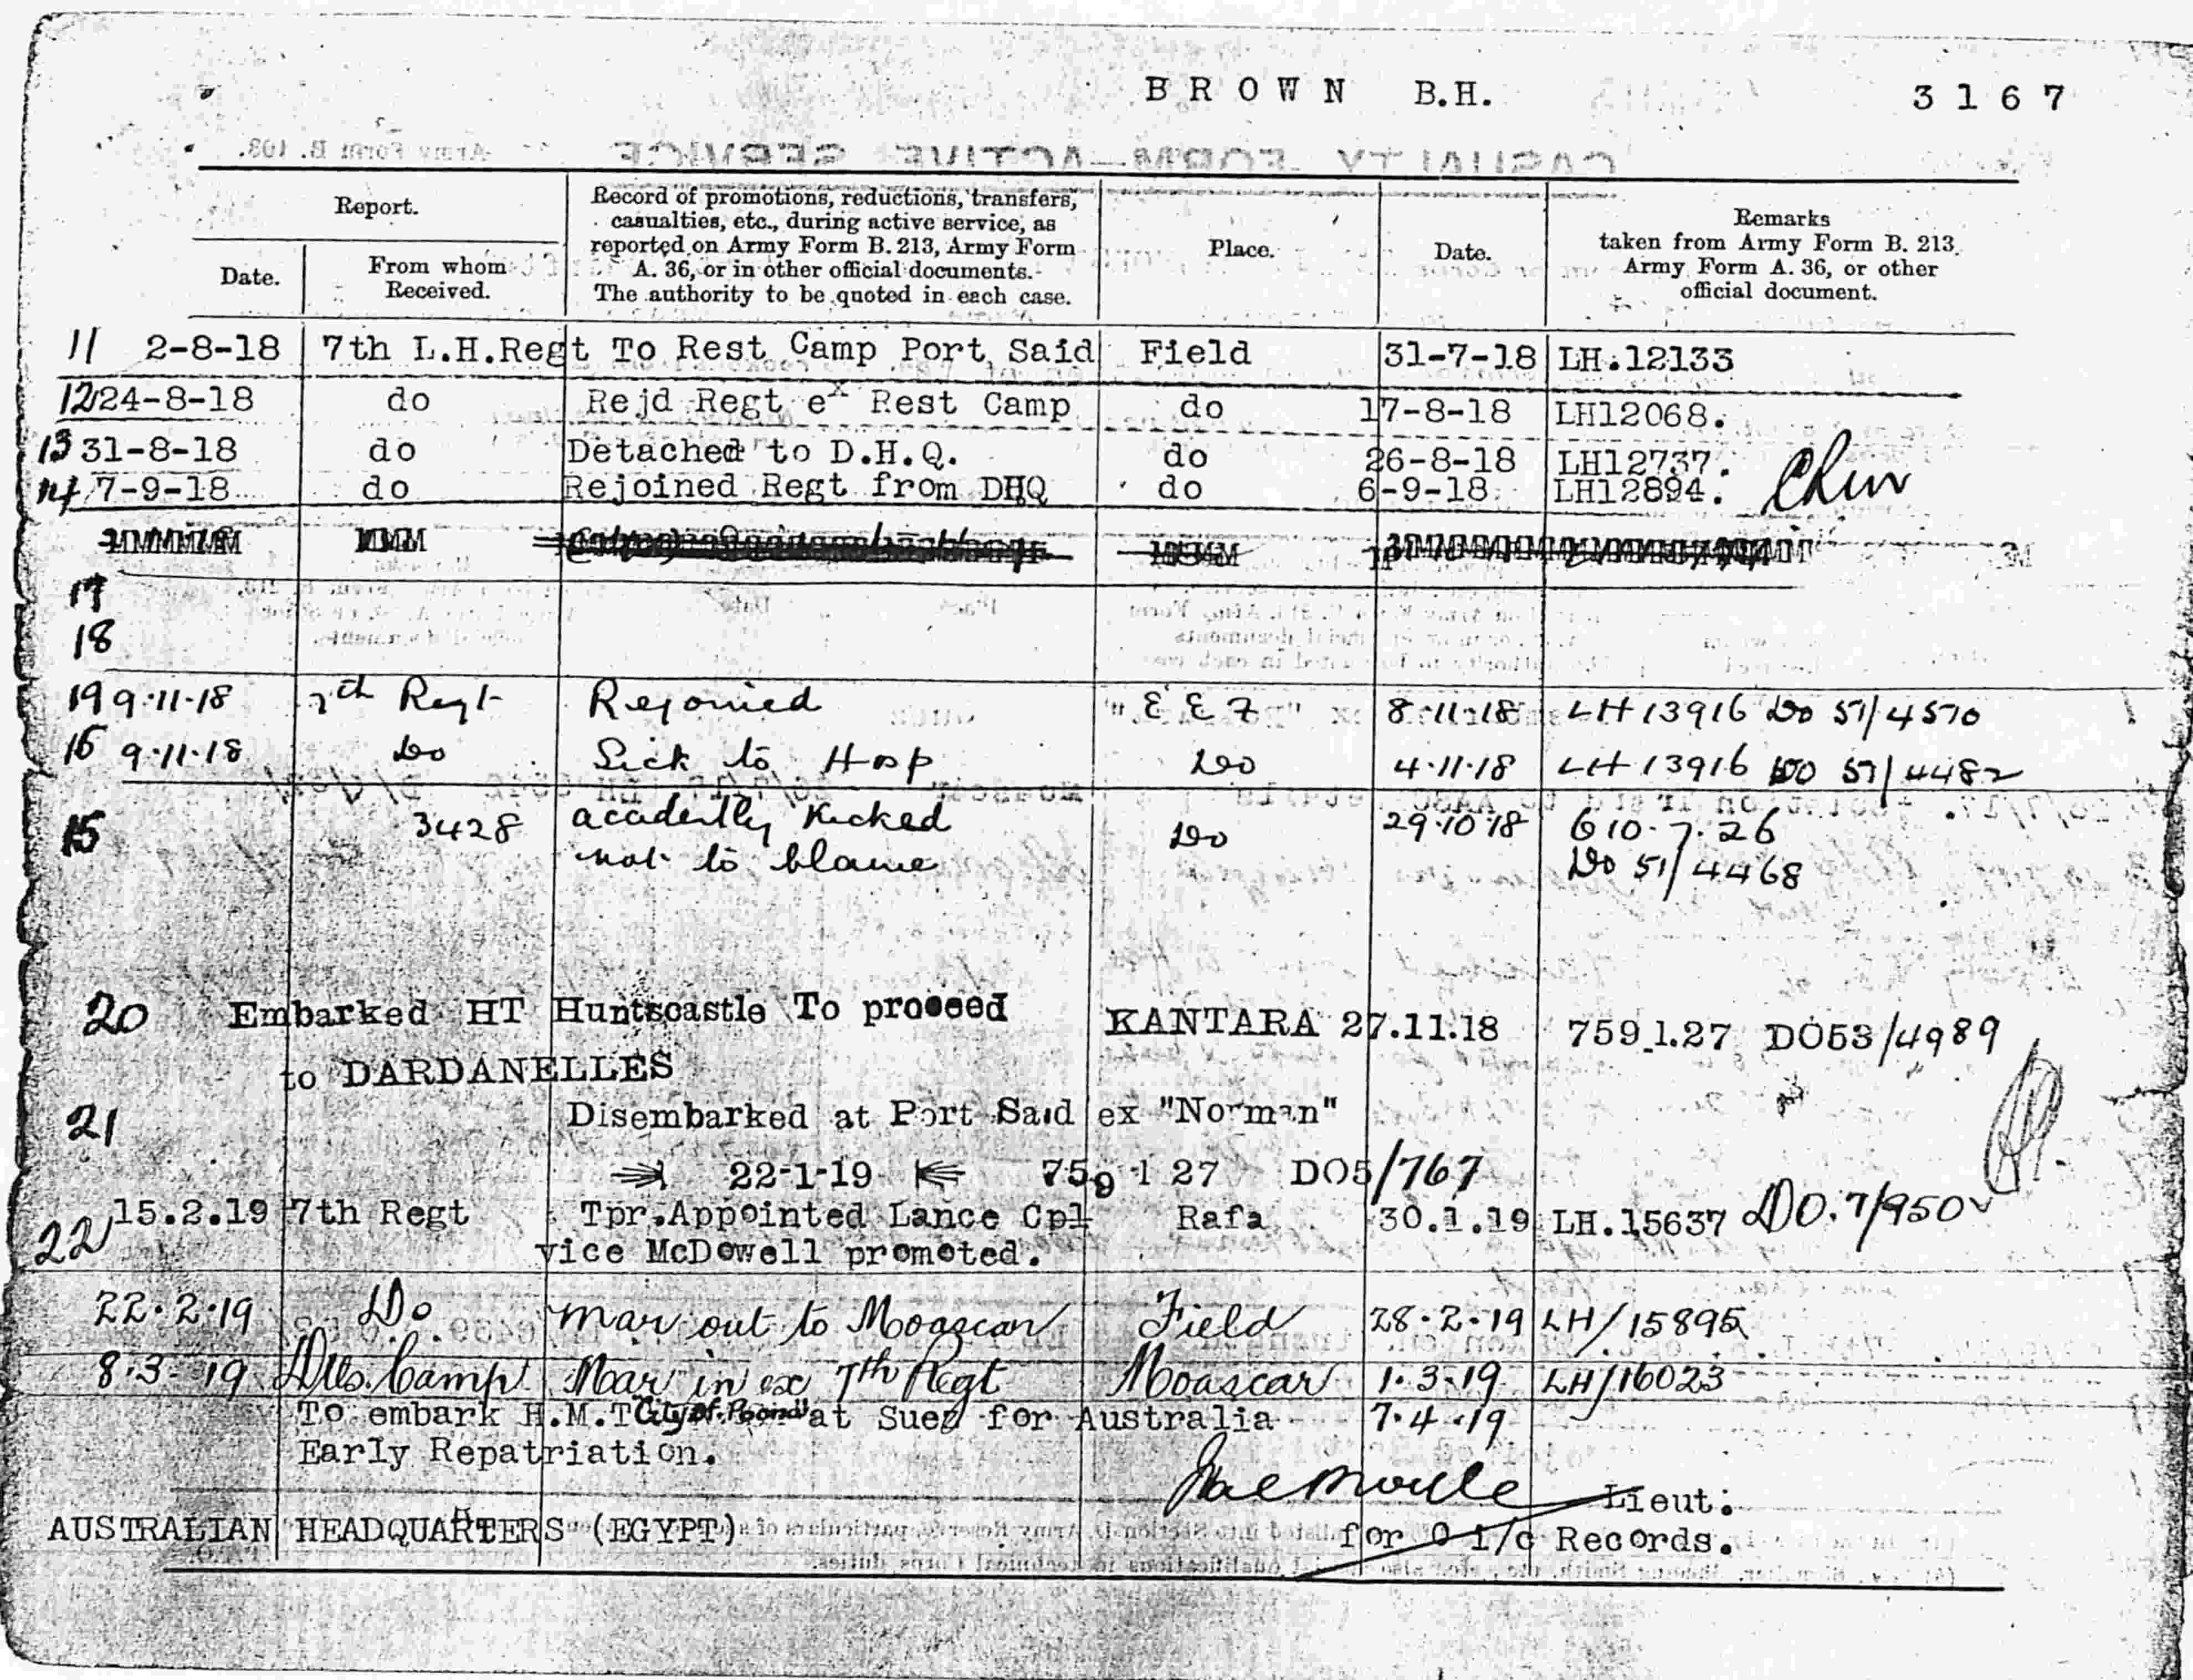 BROWN B.H. 3167
CASUALTY FORM—ACTIVE SERVICE Army Form B. 103.
Report.
Date.
From whom
Received.
Record of promotions, reductions, transfers,
casualties, etc., during active service, as
reported on Army Form B. 213, Army Form
A. 36, or in other official documents.
The authority to be quoted in each case.
Place.
Date.
Remarks
taken from Army Form B. 213,
Army Form A. 36, or other
official document.
11 2-8-18 7th L.H.Regt To Rest Camp Port Said Field 31-7-18 LH.12133
12 24-8-18 do Rejd Regt ex Rest Camp do 17-8-18 LH12068.
13 31-8-18 do Detached to D.H.Q. do 26-8-18 LH12737.
14 7-9-18 do Rejoined Regt from DHQ do 6-9-18 LH12894.
17
18
19 9.11.18 7th Regt Rejoined E E F 8.11.18 LH 13916 Do 51/4570
16 9.11.18 Do Sick to Hosp Do 4.11.18 LH 13916 DO 51/4482
15 3428 acadently Kicked Do 29.10.18 610.7.26
not to blame Do 51/4468
20 Embarked HT Huntscastle To proceed KANTARA 27.11.18 759.1.27 DO53/4989
to DARDANELLES
21 Disembarked at Port Said ex "Norman"
22-1-19 759 1 27 DO5/767
22 15.2.19 7th Regt Tpr.Appointed Lance Cpl Rafa 30.1.19 LH.15637 DO.7/950
vice McDowell promoted.
22.2.19 Do Mar out to Moascar Field 28.2.19 LH/15895
8.3.19 Camp Mar in ex 7th Regt Moascar 1.3.19 LH/16023
To embark H.M.T "City of Poona" at Suez for Australia 7.4.19
Early Repatriation.
Lieut:
AUSTRALIAN HEADQUARTERS (EGYPT) for O i/c Records.